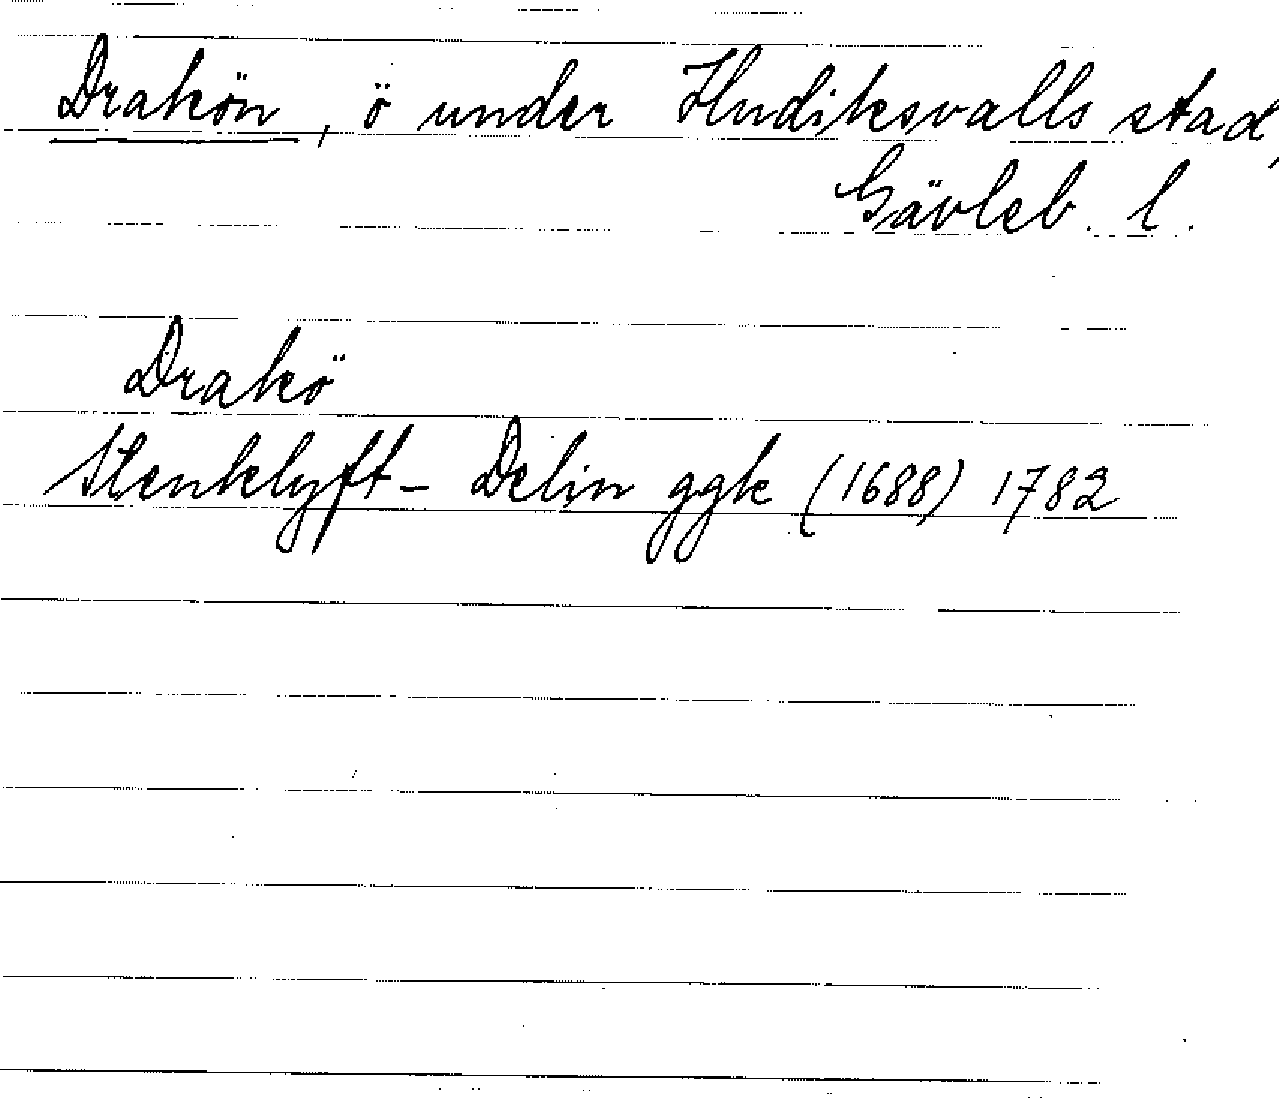 Drakön, ö under Hudiksvalls stad,
Gävleb. l.
Drakö
Stenklyft - Delin ggk (1688) 1782